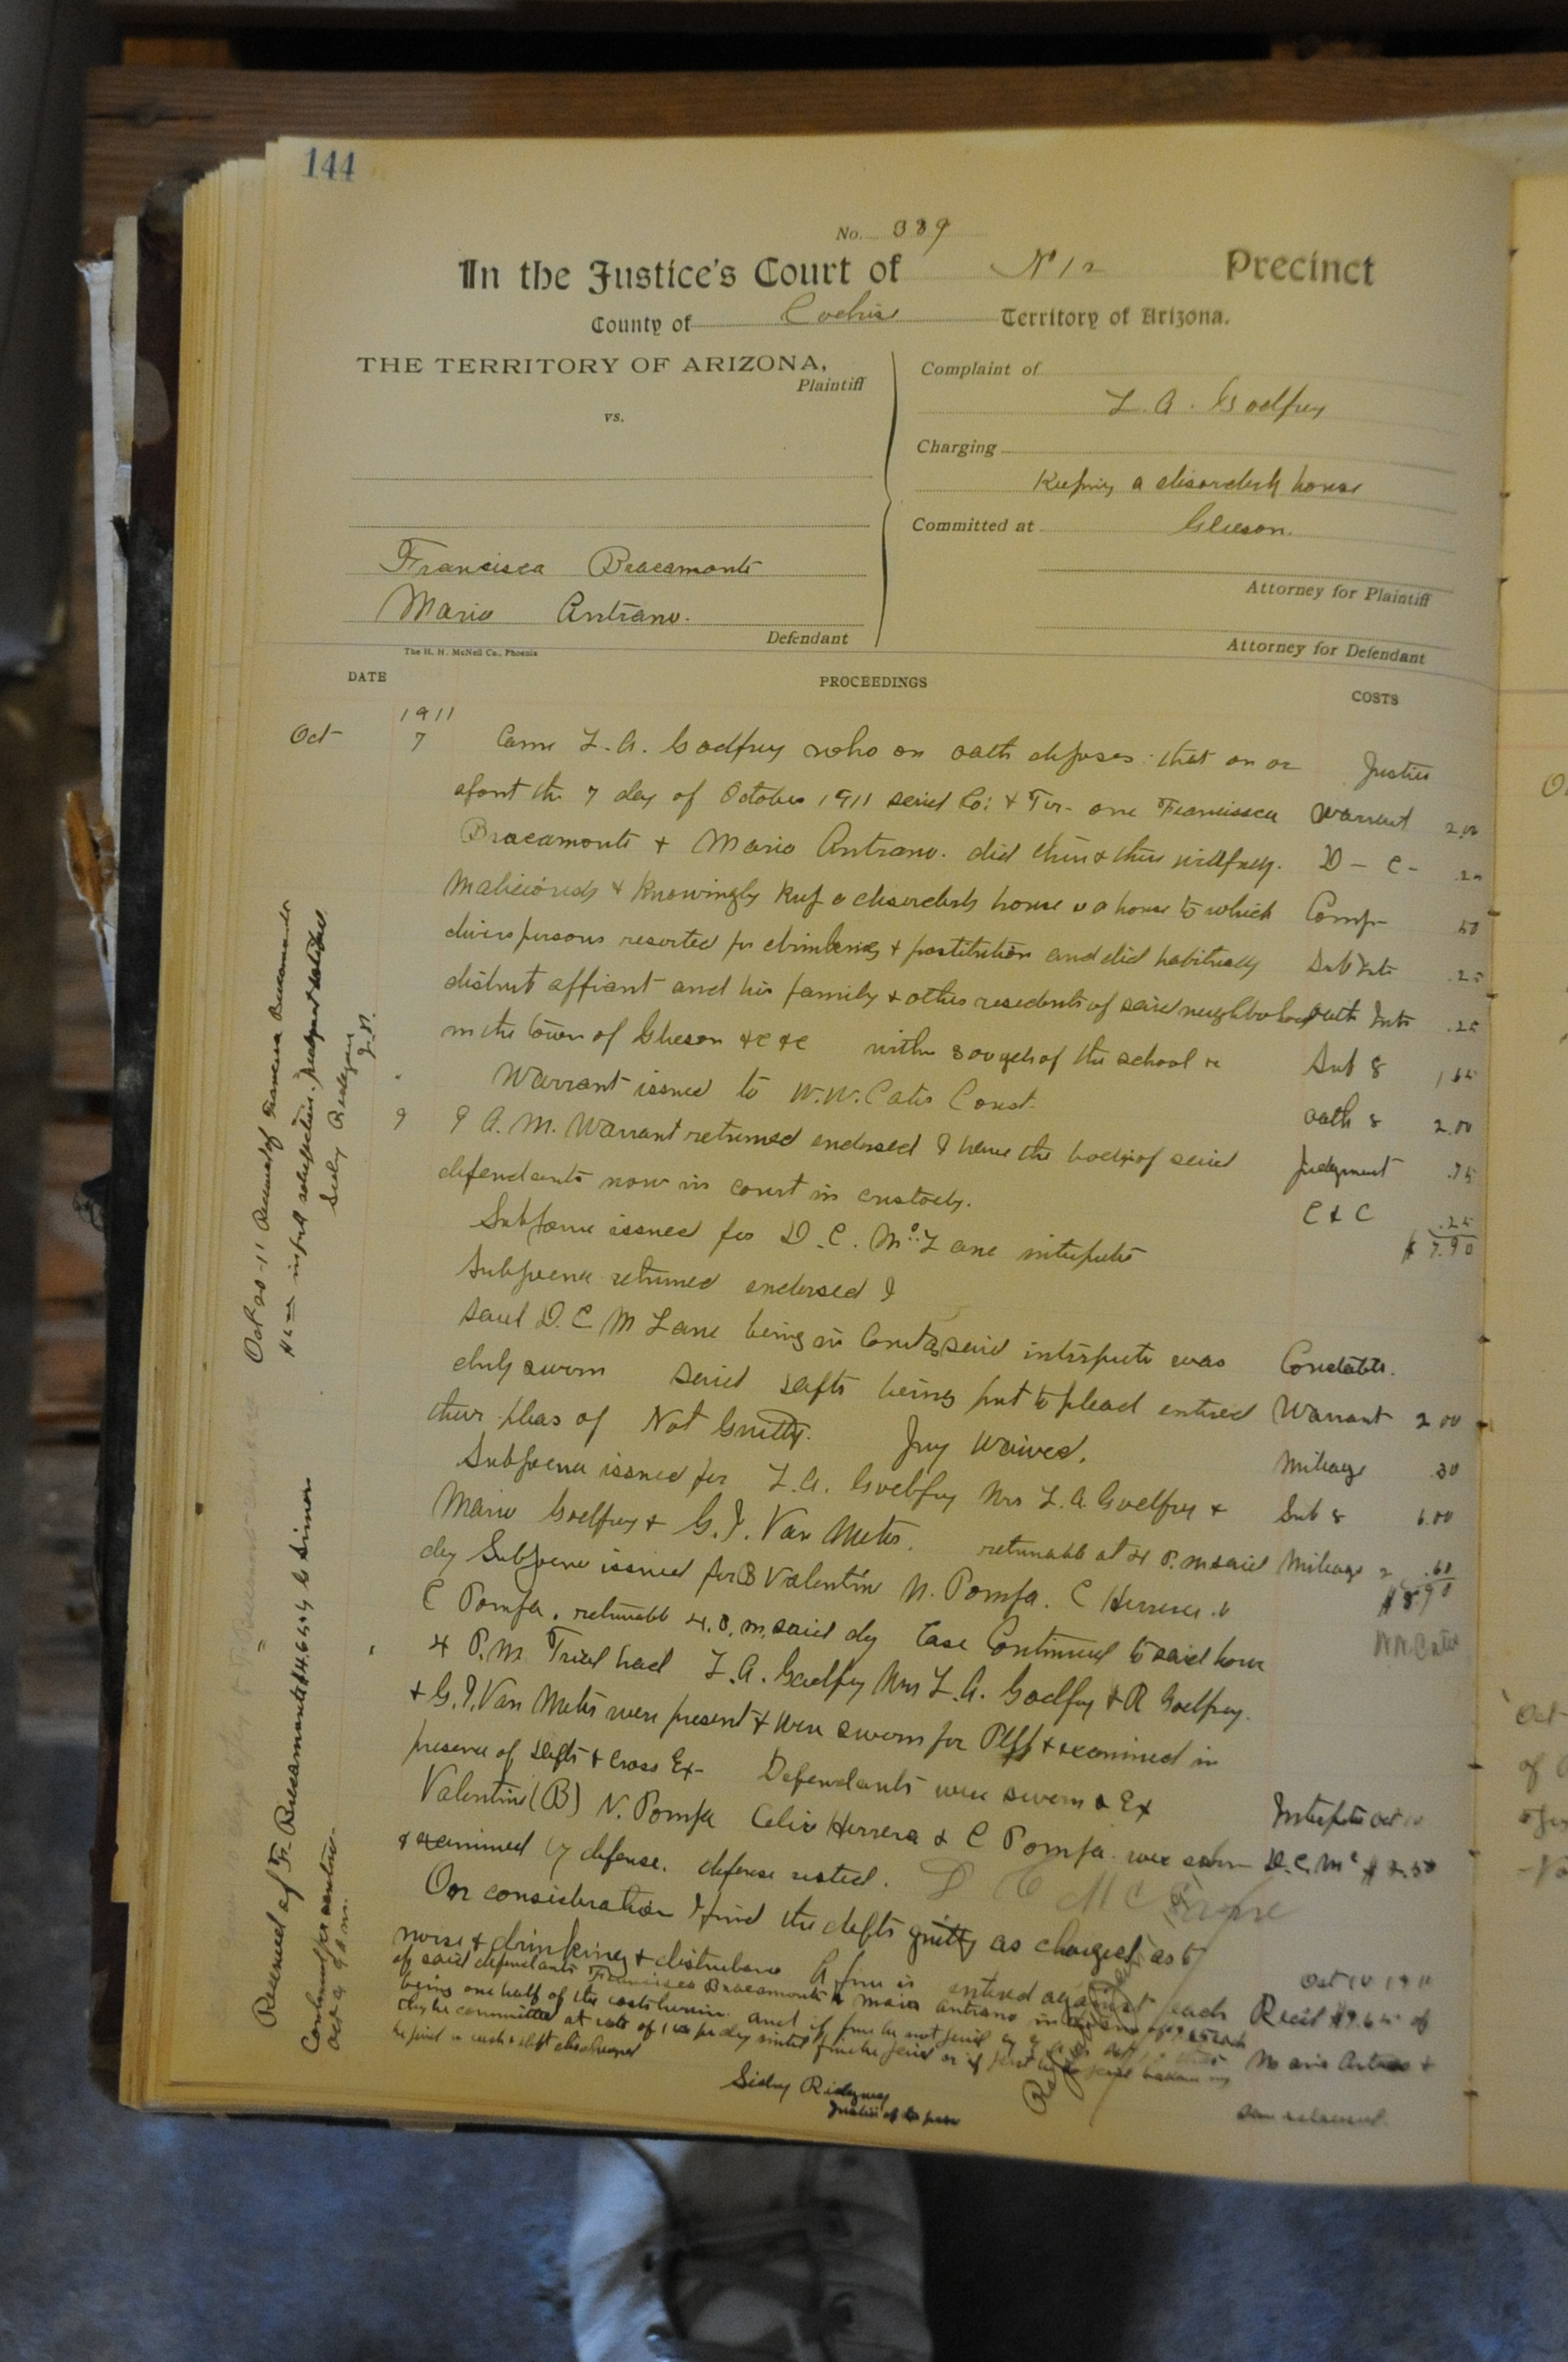 144
No. 339
In the Justice's Court of No 12 Precinct
County of Cochise Territory of Arizona.
THE TERRITORY OF ARIZONA,
Plaintiff
vs.
Francisca Bracamonte
Mario Antrano.
Defendant
Complaint of
L. A. Godfrey
Charging
Keeping a disorderly house
Committed at Gleeson.
Attorney for Plaintiff
Attorney for Defendant
The H. H. McNeil Co., Phoenix
DATE PROCEEDINGS COSTS
1911
Oct 7 Came L. A. Godfrey who on oath deposes that on or Justice
about the 7 day of October 1911 said Co. & Ter. one Francissca Warrant 2.00
Bracamonte & Mario Antrano. did then & there willfully. D - C - .20
Maliciously & Knowingly Keep a disorderly house a house to which Comp 50
divers persons resorted for drinking & prostitution and did habitually Sub Int .25
disturb affiant and his family & other residents of said neighborhood oath Int .25
in the town of Gleeson &c &c within 300 yds of the school Sub 8 1.65
Warrant issued to W. W. Cates Const. oath 8 2.00
9 9 A. M. Warrant returned endorsed I have the body of said Judgment .75
defendants now in court in custody. C & C .25
$ 7.90
Subpoena issued for D. C. McLane interpreter
Subpoena returned endorsed I
said D. C McLane being in Court said interpreter was Constable.
duly sworn said defts being put to plead entered Warrant 2 00
their pleas of Not Guilty. Jury Waived. Mileage 30
Subpoena issued for L. A. Godfrey Mrs L. A. Godfrey & Sub 8 6.00
Godfrey & G. I. Van Meter. returnable at 4 P. m said Mileage 2 .60
day Subpoena issued for B Valentin N. Pompa. C Herrera & $ 8.90
C Pompa. returnable 4. P. m. said dy Case Continued to said hour W. W. Cates
4 P.M. Trial had L. A. Godfrey Mrs L. A. Godfrey & R Godfrey.
& G. I. Van Meter were present & were sworn for Plff & examined in
presence of defts & Cross Ex- Defendants were sworn & Ex
Valentin (B) N. Pompa Celia Herrera & C Pompa were sworn Interpreter Oct 10
& examined by defense. defense rested. D. C. Mc $ 2.50
D C McLane
On consideration I find the defts guilty as charged as to
noise & drinking & disturbance A fine is entered against each Oct 10 1911
of said defendants Francisca Bracamonte & Mario Antrano in the sum of Recd $9.65 of
being one half of the costs herein and if fine be not paid Mario Antrano &
they be committed at rate of 1 per day until fine be paid
be paid in cash & deft discharged
Sidney Ridgway
Justice of the peace
Oct 20 - 11 Received of Francisca Bracamonte
in full satisfaction. Judgment satisfied
Sidney Ridgway
J. P.
Received of Fr. Bracamonte
Continued for
Oct 9 9 a m.